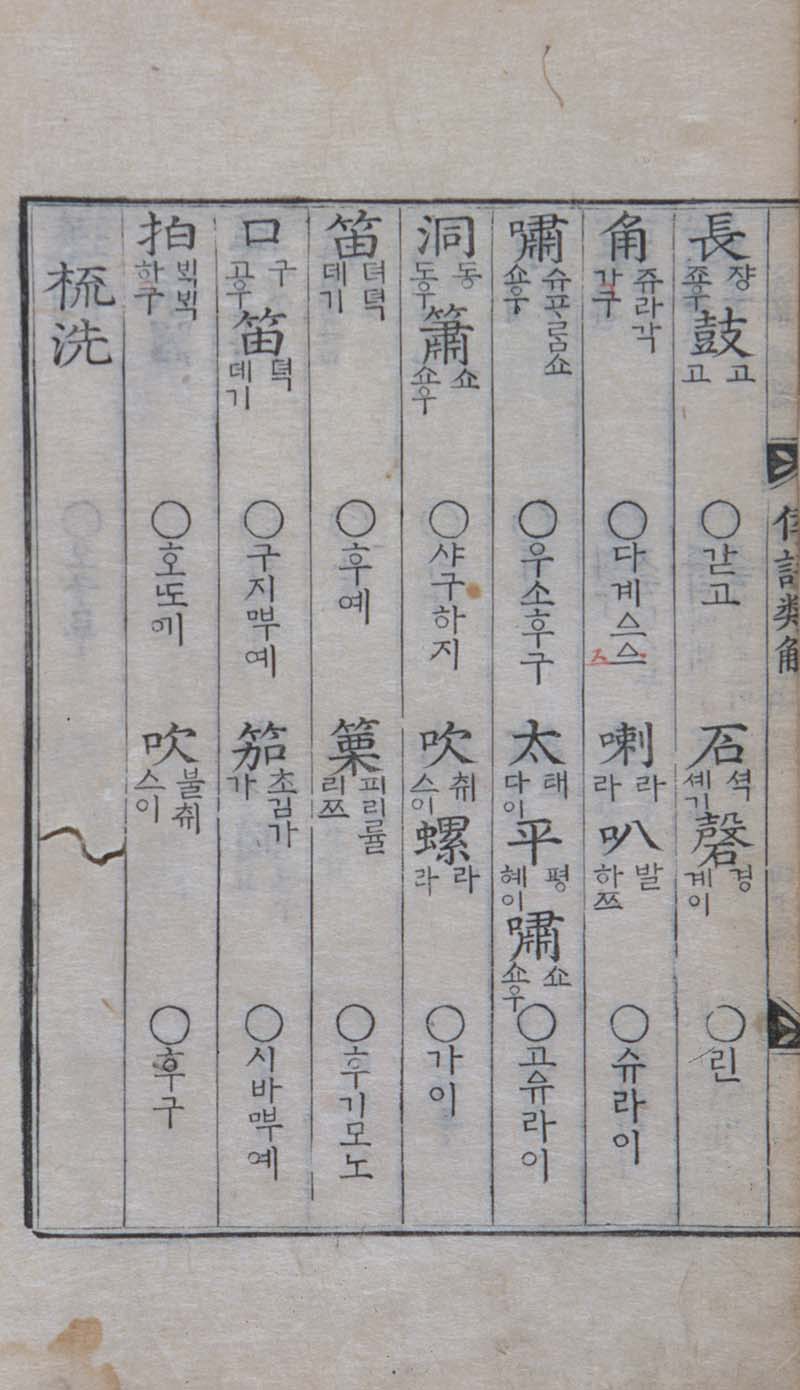 倭語類解
長 쟝 죠우 鼓 고 고 ○갇고 石 셕 셰기 磬 경 계이 ○린
角 쥬라각 가구 ○다계스스 ス 喇 라 라 叭 발 하쯔 ○슈라이
嘯 슈ᄑᆞᄅᆞᆷ쇼 쇼우 ○우소후구 太 태 다이 平 평 혜이 嘯 쇼 쇼우 ○고슈라이
洞 동 동우 簫 쇼 쇼우 ○샤구하지 吹 취 스이 螺 라 라 ○가이
笛 뎌뎍 데기 ○후예 篥 피리률 리쯔 ○후기모노
口 구 고우 笛 뎍 데기 ○구지ᄜᅮ예 笳 초김가 가 ○시바ᄜᅮ예
拍 ᄇᆡᆨᄇᆡᆨ 하구 ○호또ᄭᅵ 吹 불취 스이 ○후구
梳洗